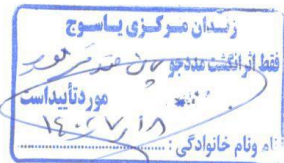 زندان مرکزی یاسوج
فقط اثر انگشت مددجو
مورد تأیید است
۱۴۰۲/۷/۱۸
نام ونام خانوادگی :